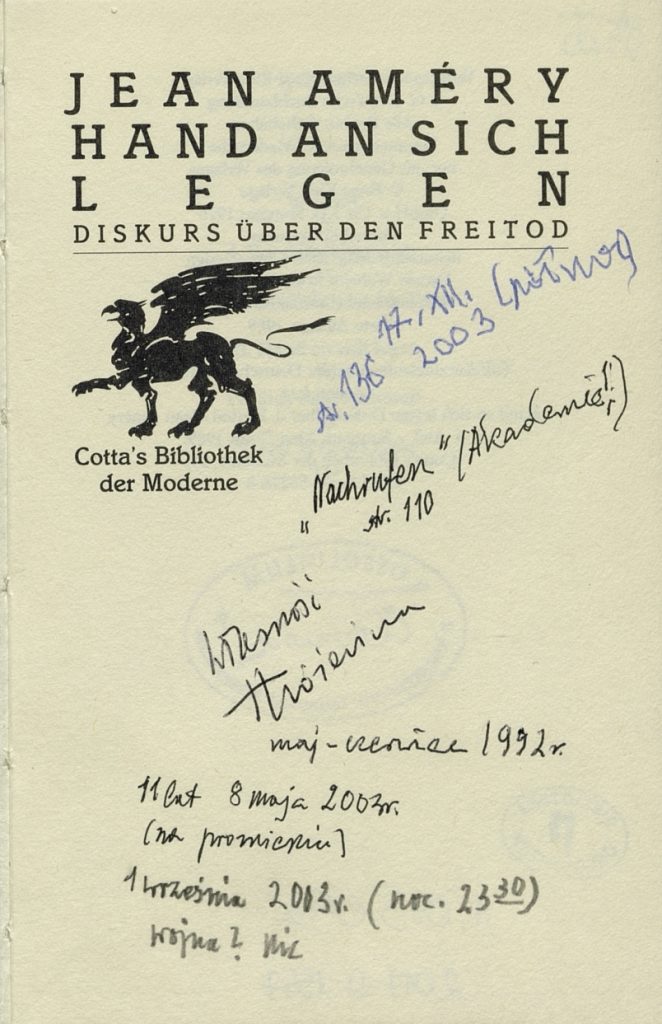 JEAN AMÉRY
HAND AN SICH
LEGEN
DISKURS ÜBER DEN FREITOD
17. XII.
str. 136 2003 (północ)
Cotta's Bibliothek
der Moderne
"Nachrufen" (Akademie!!)
str. 110
Własność
maj-czerwiec 1992r.
11 lat 8 maja 2003r.
(na promieniu)
1 września 2003r. (noc. 23 30)
wojna? nic